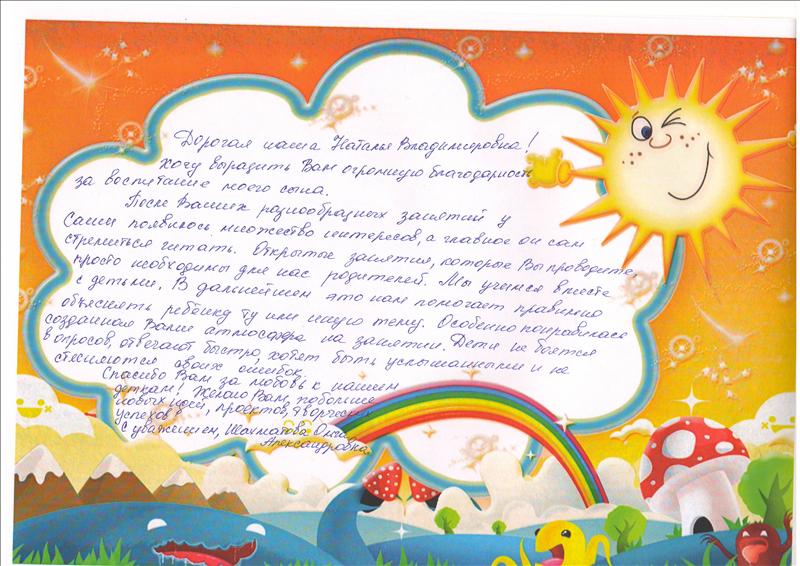 Дорогая наша Наталья Владимировна!
хочу выразить Вам огромную благодарность
за воспитание моего сына.
После Ваших разнообразных занятий у
Саши появилось множество интересов, а главное он сам
стремиться читать. Открытые занятия, которые Вы проводите,
просто необходимы для нас родителей. Мы учимся вместе
с детьми. В дальнейшем это нам помогает правильно
объяснять ребёнку ту или иную тему. Особенно понравилась
созданная Вами атмосфера на занятии. Дети не боятся
вопросов, отвечают быстро, хотят быть услышанными и не
стесняются своих ошибок.
Спасибо Вам за любовь к нашим
деткам! Желаю Вам, побольше
новых идей, проектов, творческих
успехов
С уважением, Шахматова Ольга
Александровна.